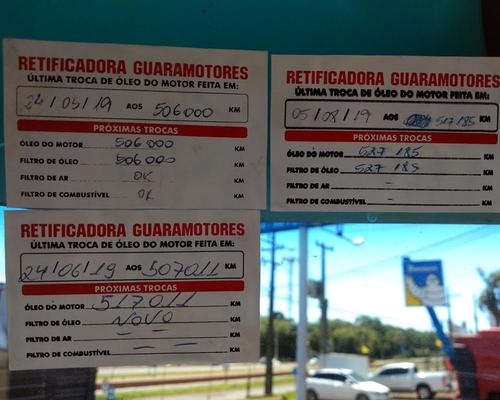 RETIFICADORA GUARAMOTORES
ÚLTIMA TROCA DE ÓLEO DO MOTOR FEITA EM:
24/05/19 AOS 506000 KM
PRÓXIMAS TROCAS
ÓLEO DO MOTOR 506000 KM
FILTRO DE ÓLEO 506000 KM
FILTRO DE AR OK KM
FILTRO DE COMBUSTÍVEL OK KM
RETIFICADORA GUARAMOTORES
ÚLTIMA TROCA DE ÓLEO DO MOTOR FEITA EM:
05/08/19 AOS 517185 KM
PRÓXIMAS TROCAS
ÓLEO DO MOTOR 527 185 KM
FILTRO DE ÓLEO 527 185 KM
FILTRO DE AR - KM
FILTRO DE COMBUSTÍVEL - KM
RETIFICADORA GUARAMOTORES
ÚLTIMA TROCA DE ÓLEO DO MOTOR FEITA EM:
24/06/19 AOS 507011 KM
PRÓXIMAS TROCAS
ÓLEO DO MOTOR 517011 KM
FILTRO DE ÓLEO NOVO KM
FILTRO DE AR - - KM
FILTRO DE COMBUSTÍVEL - - KM